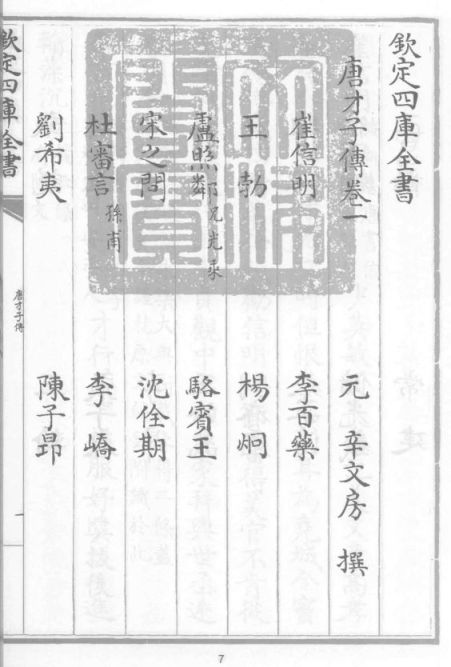 欽定四庫全書
唐才子傳卷一
元 辛文房 撰
崔信明 李百藥
王勃 楊炯
盧照鄰 兄光乘 駱賓王
宋之問 沈佺期
杜審言 孫甫 李嶠
劉希夷 陳子昂
欽定四庫全書
唐才子傳
一
7